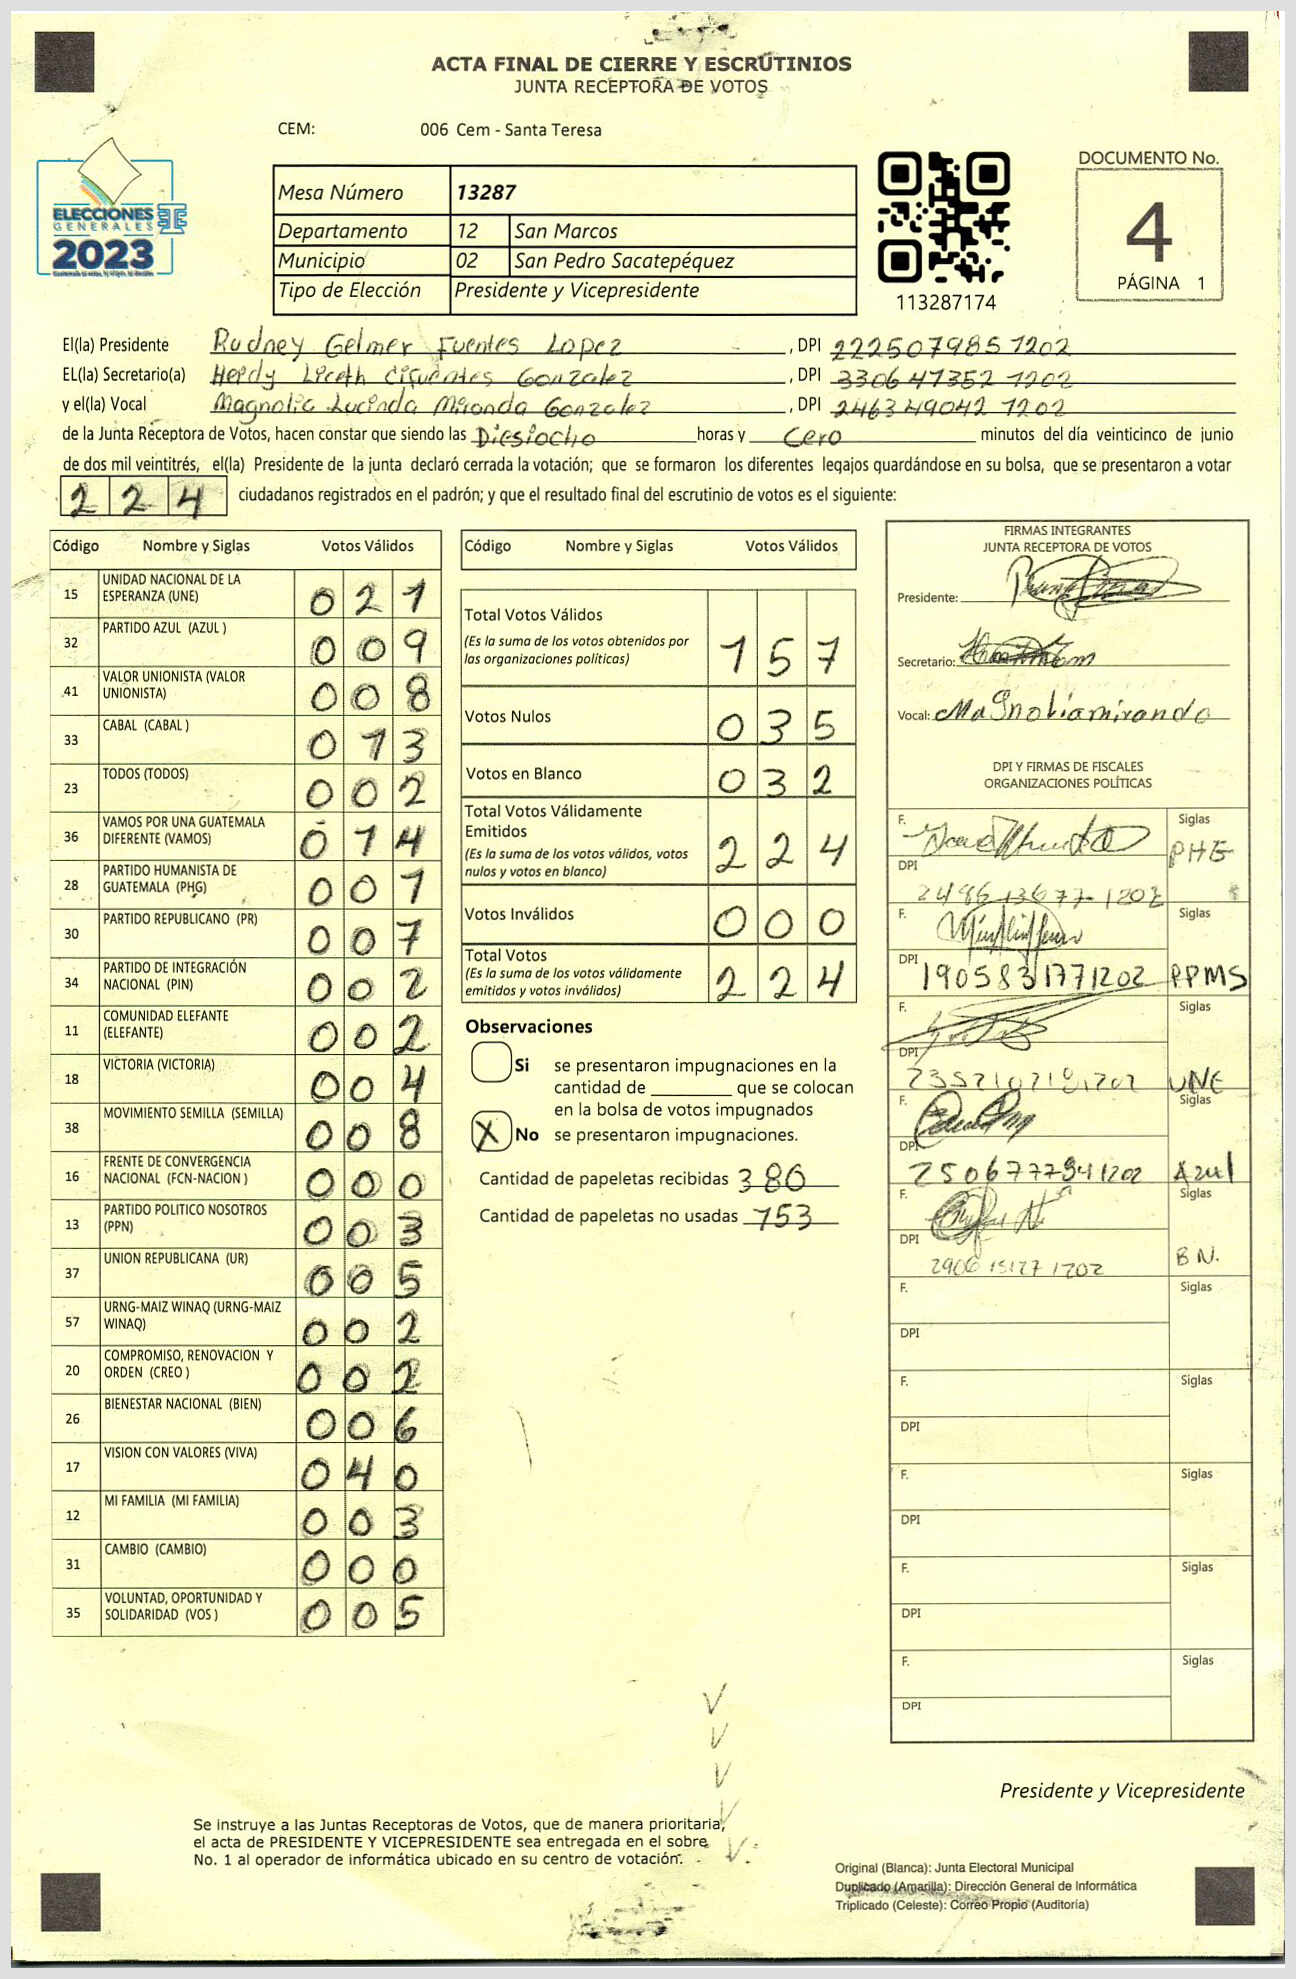 ACTA FINAL DE CIERRE Y ESCRUTINIOS
JUNTA RECEPTORA DE VOTOS
CEM: 006 Cem - Santa Teresa
ELECCIONES
GENERALES
2023
Mesa Número 13287
Departamento 12 San Marcos
Municipio 02 San Pedro Sacatepéquez
Tipo de Elección Presidente y Vicepresidente
113287174
DOCUMENTO No.
4
PÁGINA 1
El(la) Presidente Rudney Gelmer Fuentes Lopez , DPI 222507985 1202
EL(la) Secretario(a) Heidy Liceth Cifuentes Gonzalez , DPI 330647352 1202
y el(la) Vocal Magnolia Lucinda Miranda Gonzalez , DPI 246349042 1202
de la Junta Receptora de Votos, hacen constar que siendo las Diesiocho horas y Cero minutos del día veinticinco de junio
de dos mil veintitrés, el(la) Presidente de la junta declaró cerrada la votación; que se formaron los diferentes legajos guardándose en su bolsa, que se presentaron a votar
224 ciudadanos registrados en el padrón; y que el resultado final del escrutinio de votos es el siguiente:
Código Nombre y Siglas Votos Válidos
15 UNIDAD NACIONAL DE LA ESPERANZA (UNE) 021
32 PARTIDO AZUL (AZUL ) 009
41 VALOR UNIONISTA (VALOR UNIONISTA) 008
33 CABAL (CABAL ) 013
23 TODOS (TODOS) 002
36 VAMOS POR UNA GUATEMALA DIFERENTE (VAMOS) 014
28 PARTIDO HUMANISTA DE GUATEMALA (PHG) 001
30 PARTIDO REPUBLICANO (PR) 007
34 PARTIDO DE INTEGRACIÓN NACIONAL (PIN) 002
11 COMUNIDAD ELEFANTE (ELEFANTE) 002
18 VICTORIA (VICTORIA) 004
38 MOVIMIENTO SEMILLA (SEMILLA) 008
16 FRENTE DE CONVERGENCIA NACIONAL (FCN-NACION ) 000
13 PARTIDO POLITICO NOSOTROS (PPN) 003
37 UNION REPUBLICANA (UR) 005
57 URNG-MAIZ WINAQ (URNG-MAIZ WINAQ) 002
20 COMPROMISO, RENOVACION Y ORDEN (CREO ) 002
26 BIENESTAR NACIONAL (BIEN) 006
17 VISION CON VALORES (VIVA) 040
12 MI FAMILIA (MI FAMILIA) 003
31 CAMBIO (CAMBIO) 000
35 VOLUNTAD, OPORTUNIDAD Y SOLIDARIDAD (VOS ) 005
Código Nombre y Siglas Votos Válidos
Total Votos Válidos 157
(Es la suma de los votos obtenidos por
las organizaciones políticas)
Votos Nulos 035
Votos en Blanco 032
Total Votos Válidamente
Emitidos 224
(Es la suma de los votos válidos, votos
nulos y votos en blanco)
Votos Inválidos 000
Total Votos 224
(Es la suma de los votos válidamente
emitidos y votos inválidos)
Observaciones
Si se presentaron impugnaciones en la
cantidad de ________ que se colocan
en la bolsa de votos impugnados
X No se presentaron impugnaciones.
Cantidad de papeletas recibidas 380
Cantidad de papeletas no usadas 153
FIRMAS INTEGRANTES
JUNTA RECEPTORA DE VOTOS
Presidente:
Secretario:
Vocal: Magnoliamiranda
DPI Y FIRMAS DE FISCALES
ORGANIZACIONES POLÍTICAS
F. Siglas
PHG
DPI
F. Siglas
DPI 1905831771202 PPMS
F. Siglas
DPI UNE
F. Siglas
DPI 250677794 1202 Azul
F. Siglas
DPI BN.
F. Siglas
DPI
F. Siglas
DPI
F. Siglas
DPI
F. Siglas
DPI
F. Siglas
DPI
Presidente y Vicepresidente
Se instruye a las Juntas Receptoras de Votos, que de manera prioritaria,
el acta de PRESIDENTE Y VICEPRESIDENTE sea entregada en el sobre
No. 1 al operador de informática ubicado en su centro de votación.
Original (Blanca): Junta Electoral Municipal
Duplicado (Amarilla): Dirección General de Informática
Triplicado (Celeste): Correo Propio (Auditoría)